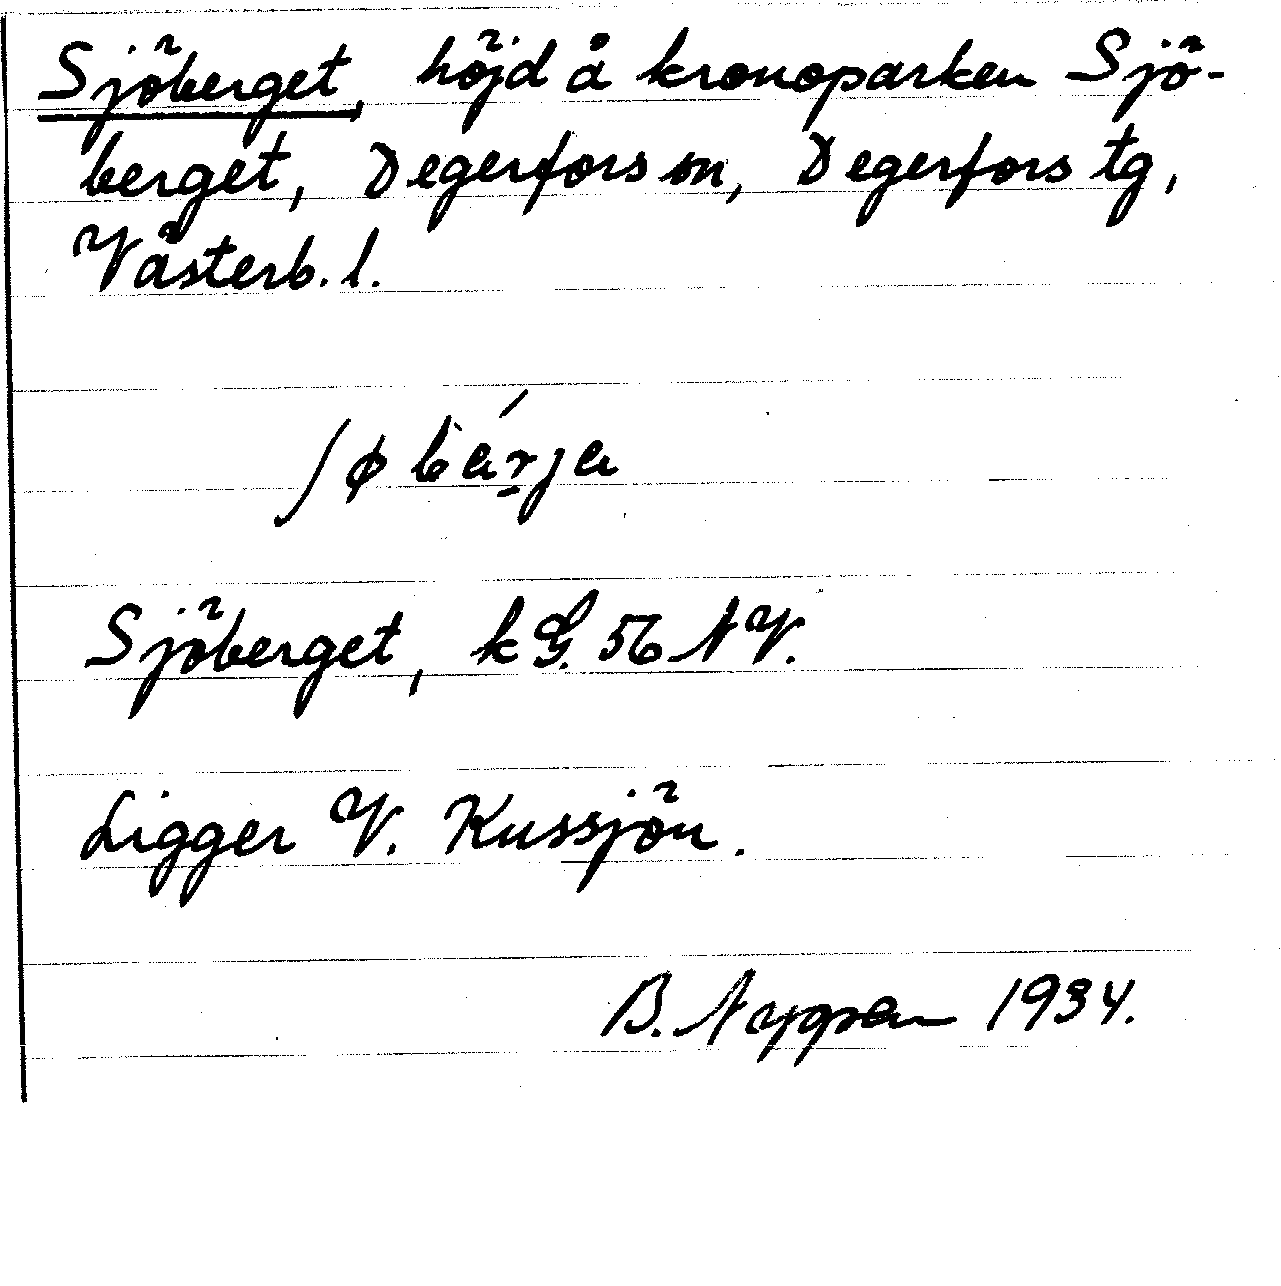 Sjöberget, höjd å kronoparken Sjö-
berget, Degerfors sn, Degerfors tg,
Västerb. l.
ʃøbárja
Sjöberget, kG. 56 NV.
Ligger V. Kussjön.
B. Nygren 1934.